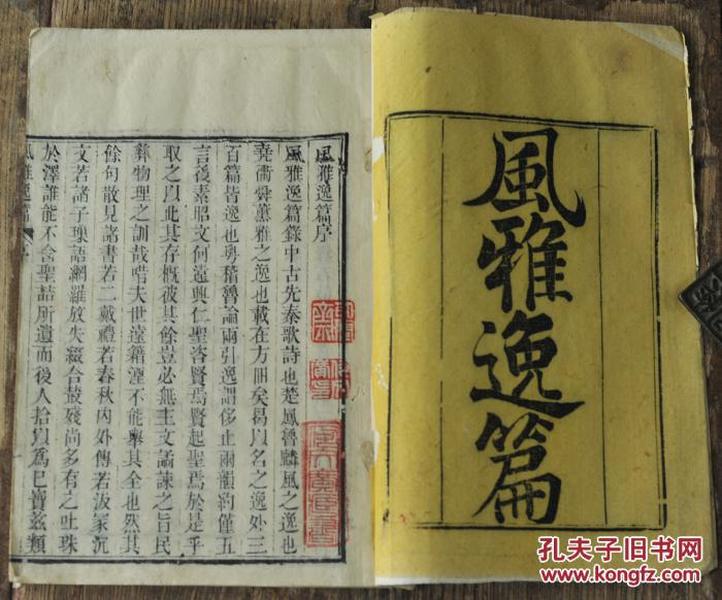 風雅逸篇
風雅逸篇序
風雅逸篇錄中古先秦歌詩也楚鳳魯麟風之逸也
堯衢舜薰雅之逸也載在方冊矣曷㠯名之逸外三
百篇皆逸也粵稽魯論兩引逸謂侈止兩韻約僅五
言後素昭文何遠興仁聖咨賢焉賢起聖焉於是乎
取之㠯此其存概彼其餘豈必無主文譎諫之旨民
彝物理之訓哉唶夫世遠籍湮不能舉其全也然其
餘句散見諸書若二戴禮若春秋內外傳若汲冢沉
文若諸子瑣語網羅放失綴合叢殘尚多有之吐珠
於澤誰能不含聖喆所遺而後人拾㠯為己寶茲類
風雅逸篇 序
孔夫子旧书网
www.kongfz.com